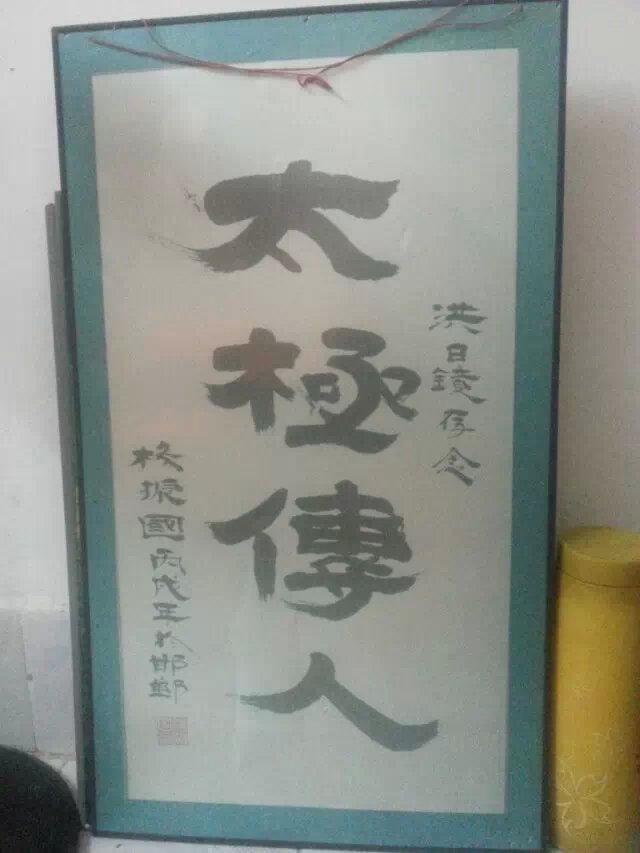 洪日鏡存念
太極傳人
杨振國丙戌年於邯鄲